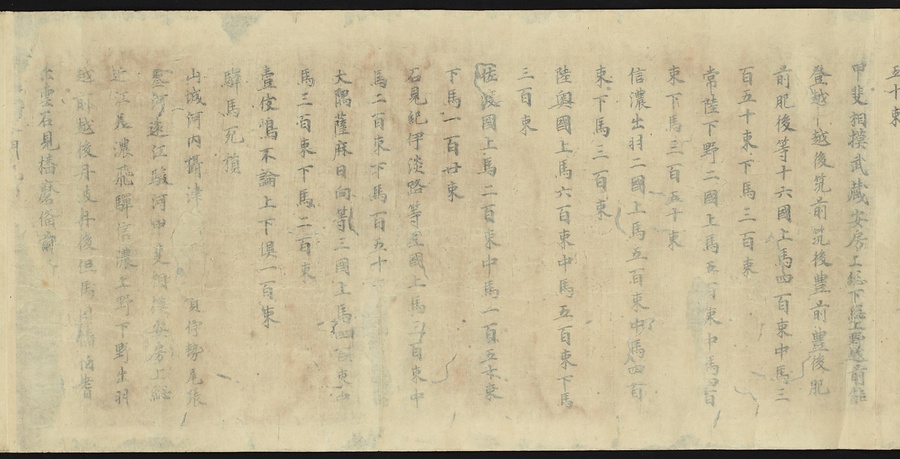 五十束
甲斐相摸武蔵安房上総下総上野越前能
登越中越後筑前筑後豊前豊後肥
前肥後等十六國上馬四百束中馬三
百五十束下馬三百束
常陸下野二國上馬五百束中馬四百
束下馬三百五十束
信濃出羽二國上馬五百束中馬四百
束下馬三百束
陸奥國上馬六百束中馬五百束下馬
三百束
國上馬二百束中馬一百五十束
下馬一百廿束
石見紀伊淡路等國上馬三百束中
馬二百束下馬百五十
大隅薩麻日向等三國上馬四百束中
馬三百束下馬二百束
壹伎嶋不論上下俱一百束
驛馬死損
山城河内攝津 伊勢尾張
参河遠江駿河甲斐相摸安房上総
近江美濃飛驒信濃上野下野出羽
越前越後丹波丹後但馬因幡伯耆
出雲石見播磨備前